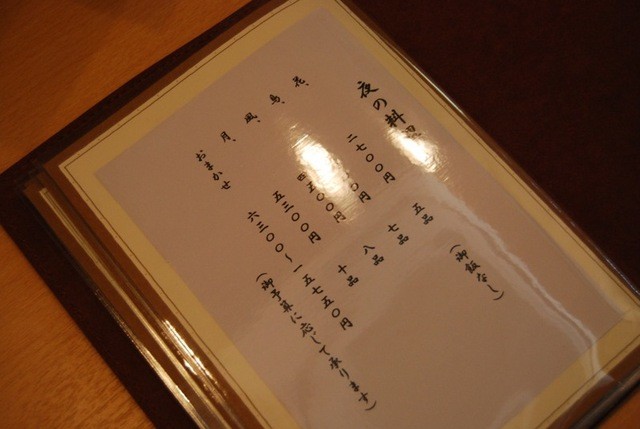 夜の料
花、 二七〇〇円 五品 (御飯なし)
鳥、 〇円 七品
風、 四五〇〇円 八品
月、 五三〇〇円 十品
おまかせ 六三〇〇〜一五七五〇円
(御予算に応じて承ります)